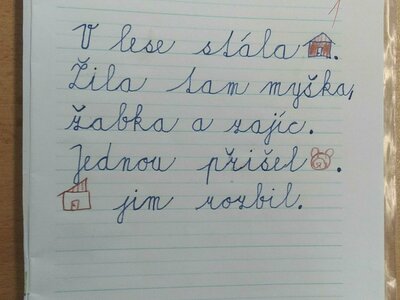 V lese stála .
Žila tam myška,
žabka a zajíc.
Jednou přišel .
jim rozbil.